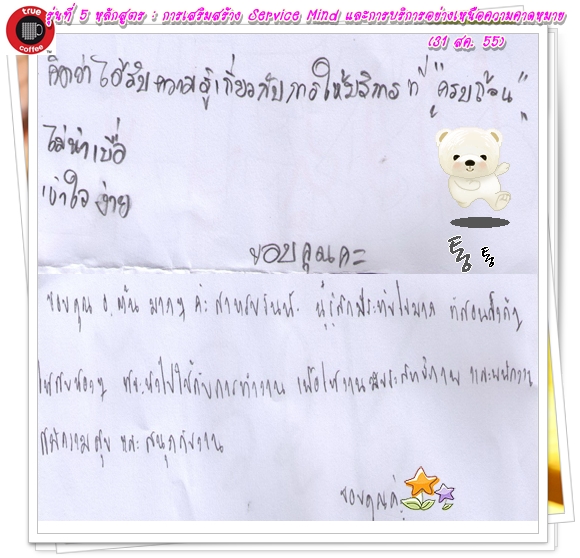 true
coffee
รุ่นที่ 5 หลักสูตร : การเสริมสร้าง Service Mind และการบริการอย่างเหนือความคาดหมาย
(31 สค. 55)
คิดว่าได้รับความรู้เกี่ยวกับการให้บริการที่ "ครบถ้วน"
ไม่น่าเบื่อ
เข้าใจง่าย
ขอบคุณคะ
통 통
ขอบคุณ อ. มากๆ ค่ะ สำหรับวันนี้ รู้สึกประทับใจมาก ที่สอนสิ่งดีๆ
ให้กับน้องๆ นำไปใช้กับการทำงาน เพื่อให้งานมีประสิทธิภาพ และพนักงาน
มีความสุข และสนุกกับงาน
ขอบคุณค่ะ